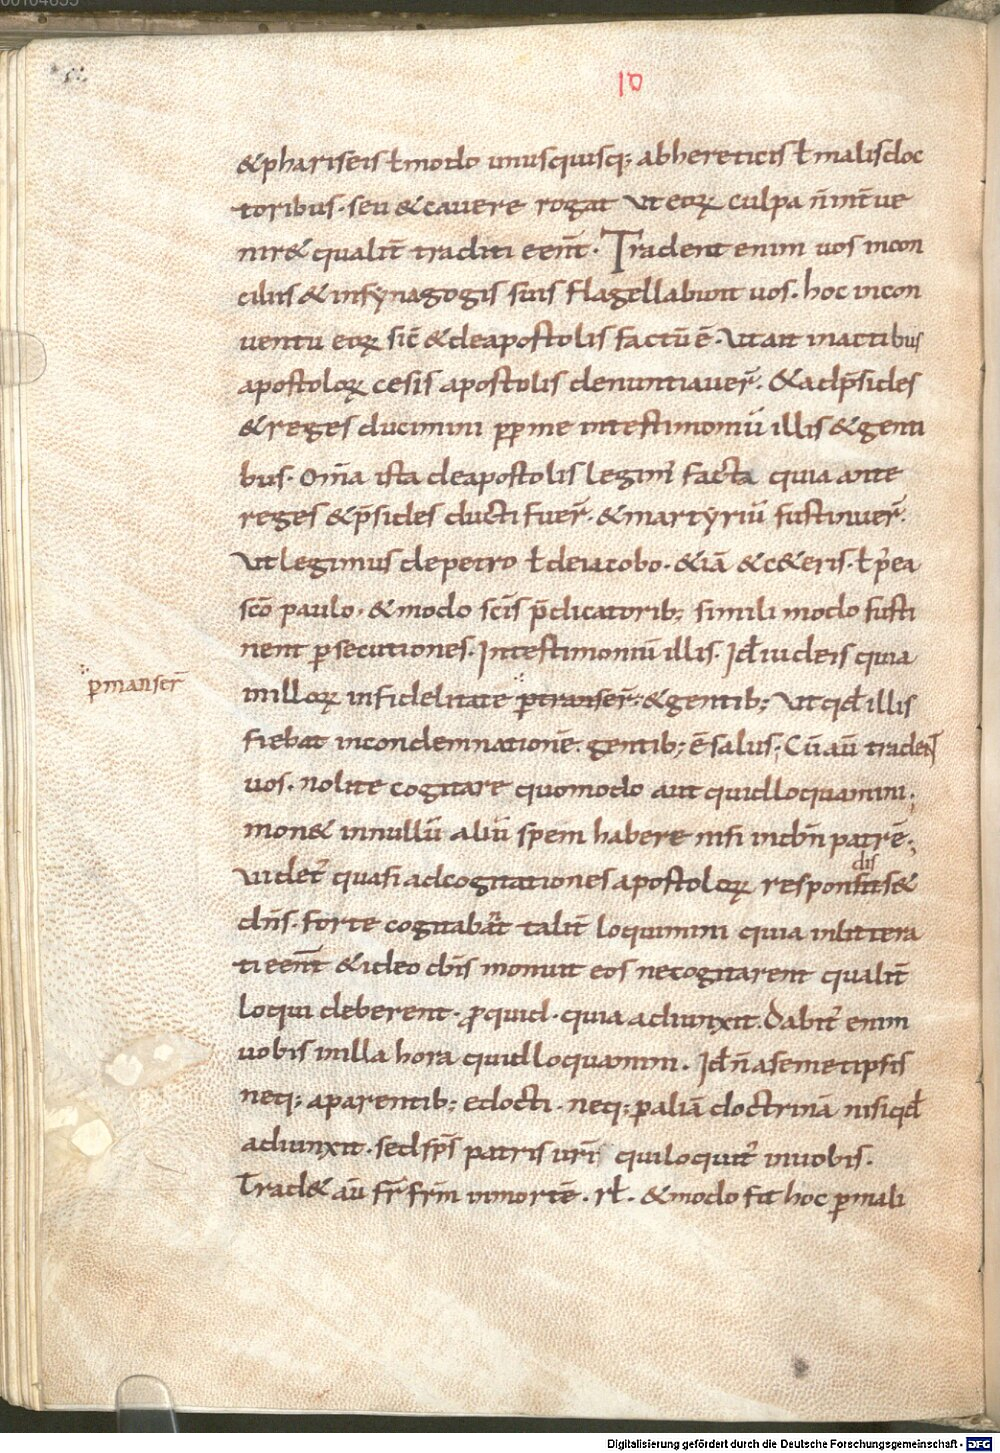 00104053
10
&phariseis ł modo unusquisq; abhereticis ł malisdoc
toribus· seu &cavere rogat ut eoꝝ culpa n̄ int̄ue
nir& qualit̄ traditi eent̄· Tradent enim uos incon
ciliis & insynagogis suis flagellabunt uos· hoc incon
uentu eoꝝ sic̄ &deapostolis factū ē· Utait inactibus
apostoloꝝ cesis apostolis denuntiauer̄· &adp̄sides
&reges ducimini ꝓpme intestimoniū illis &genti
bus· Om̄a ista deapostolis legim̄ facta quia ante
reges &p̄sides ducti fuer̄· &martyriū sustinuer̄·
Utlegimus depetro ł deiacobo· &iā &c&eris· ł p̄ea
sc̄o paulo· &modo sc̄is p̄dicatorib; simili modo susti
nent ꝑsecutiones· Intestimoniū illis· Id̄ iudeis quia
ꝑmanser̄
inilloꝝ infidelitate ꝑtranser̄· &gentib; Ut qd̄ illis
fiebat incondemnationē· gentib; ē salus; Cū aū tradent
uos· nolite cogitare quomodo aut quidloquamini·
mon& innullū aliū spem habere nisi indn̄m patrē·;
dis
Uidet̄ quasi adcogitationes apostoloꝝ responsus&
dn̄s· forte cogitabāt talit̄ loquimini quia inlittera
ti eent̄ &ideo dn̄s monuit eos necogitarent qualit̄
loqui deberent· ꝓquid· quia adiunxit· Dabit̄ enim
uobis inilla hora quidloquamini· Id̄ n̄ asemetipsis
neq; aparentib; edocti· neq; ꝑaliā doctrinā nisi qd̄
adiunxit· sed sp̄s patris ur̄i quiloquit̄ inuobis·
Trad& aū fr̄ fr̄m inmortē· rł· &modo fit hoc ꝑmali
Digitalisierung gefördert durch die Deutsche Forschungsgemeinschaft - DFG